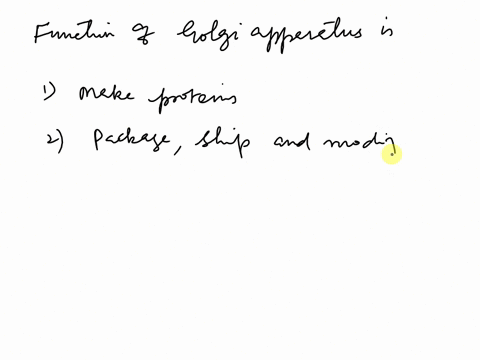 Function of Golgi apparatus is
1) make proteins
2) Package, ship and modif